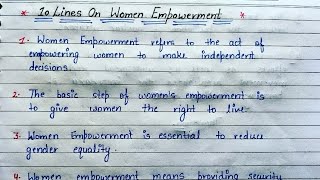 * 10 Lines On Women Empowerment *
1. Women Empowerment refers to the act of
empowering women to make independent
decisions.
2. The basic step of women's empowerment is
to give women the right to live.
3. Women Empowerment is essential to reduce
gender equality.
4. Women empowerment means providing security